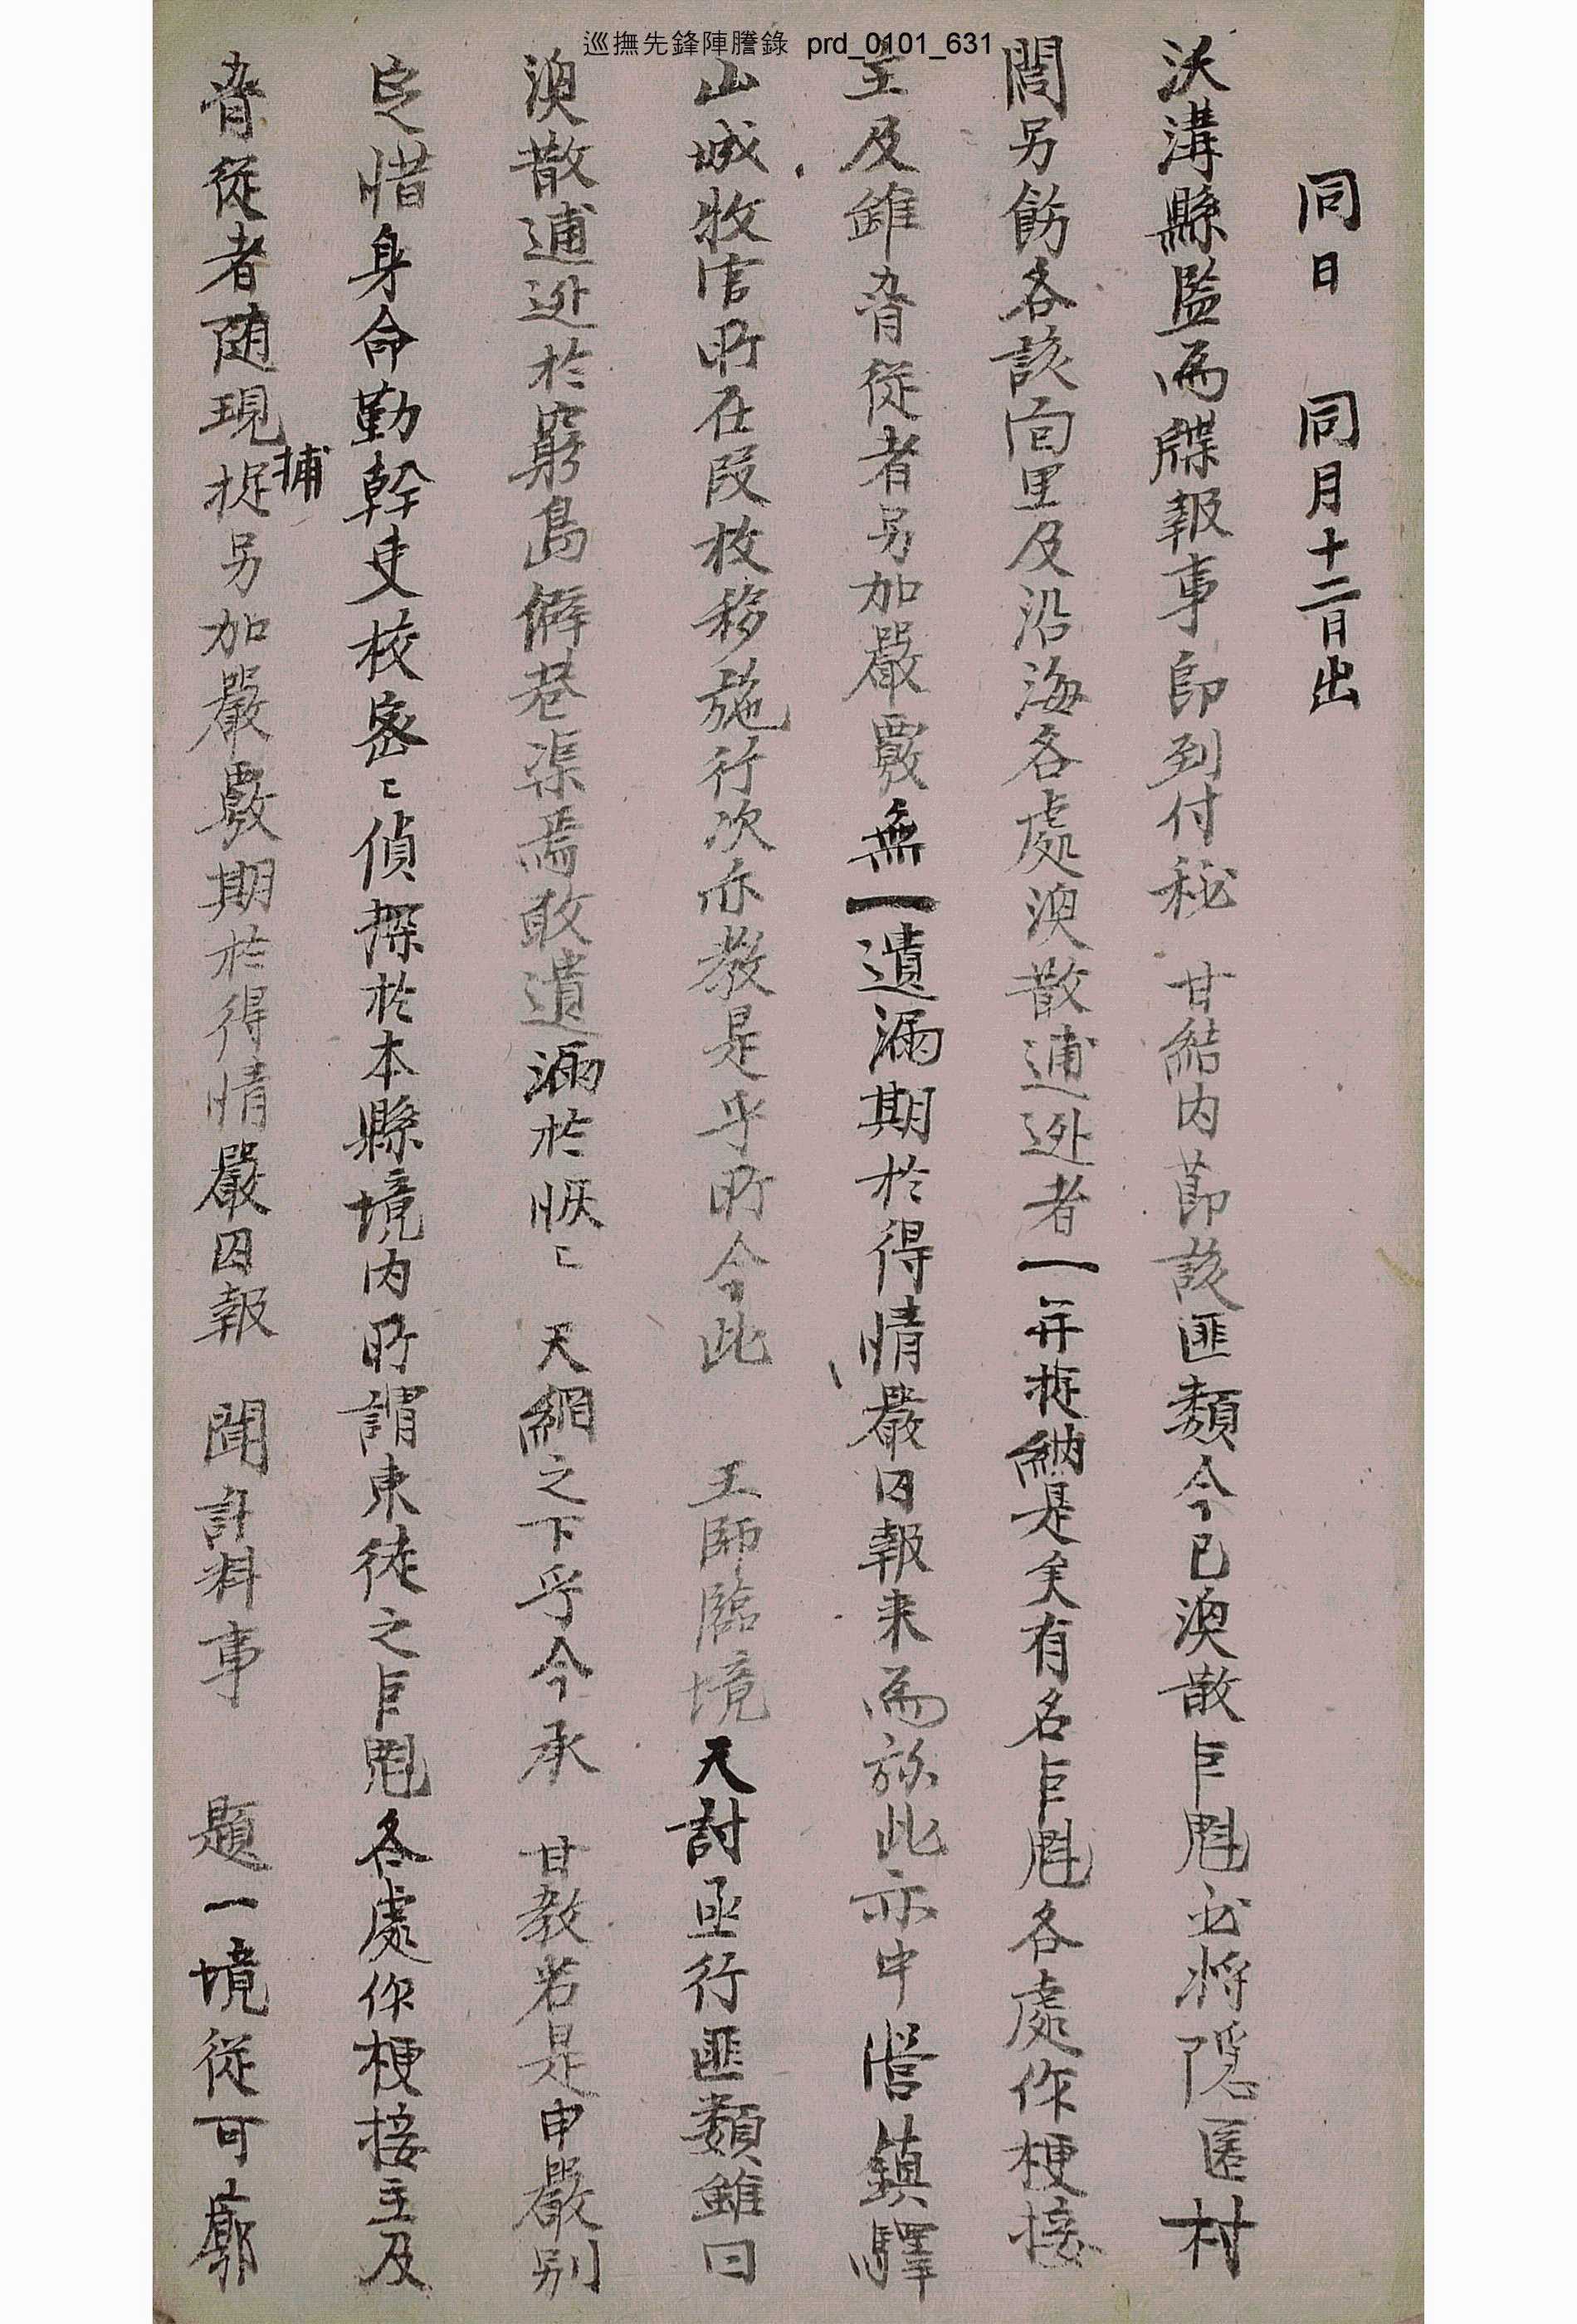 巡撫先鋒陣謄錄 prd_0101_631
同日 同月十二日出
沃溝縣監爲牒報事卽到付秘 甘結內節該匪類今已渙散巨魁必將隱匿村
閭另飭各該面里及沿海各處渙散逋逃者一幷捉納是矣有名巨魁各處作梗接
主及雖脅從者另加嚴覈無一遺漏期於得情嚴囚報來爲旀此亦中營鎭驛
山城牧官所在段枚移施行次亦敎是乎所今此 王師臨境天討亟行匪類雖曰
渙散逋逃於窮島僻巷渠焉敢遺漏於恢〻 天網之下乎今承 甘敎若是申嚴別
定惜身命勤幹吏校密〻偵探於本縣境內所謂東徒之巨魁各處作梗接主及
脅從者隨現捉捕另加嚴覈期於得情嚴囚報 聞計料事 題一境從可廓